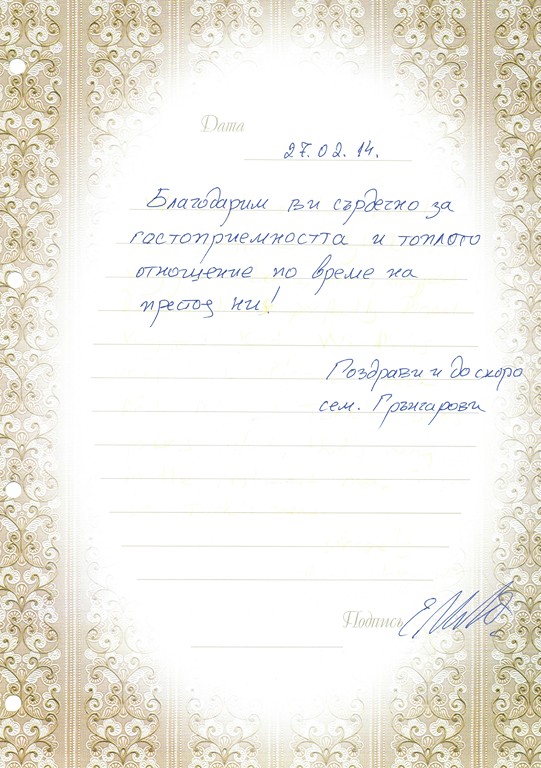 Дата
27.02.14.
Благодарим ви сърдечно за
гостоприемността и топлото
отношение по време на
престоя ни!
Поздрави и до скоро
сем. Грънчарови
Подпись